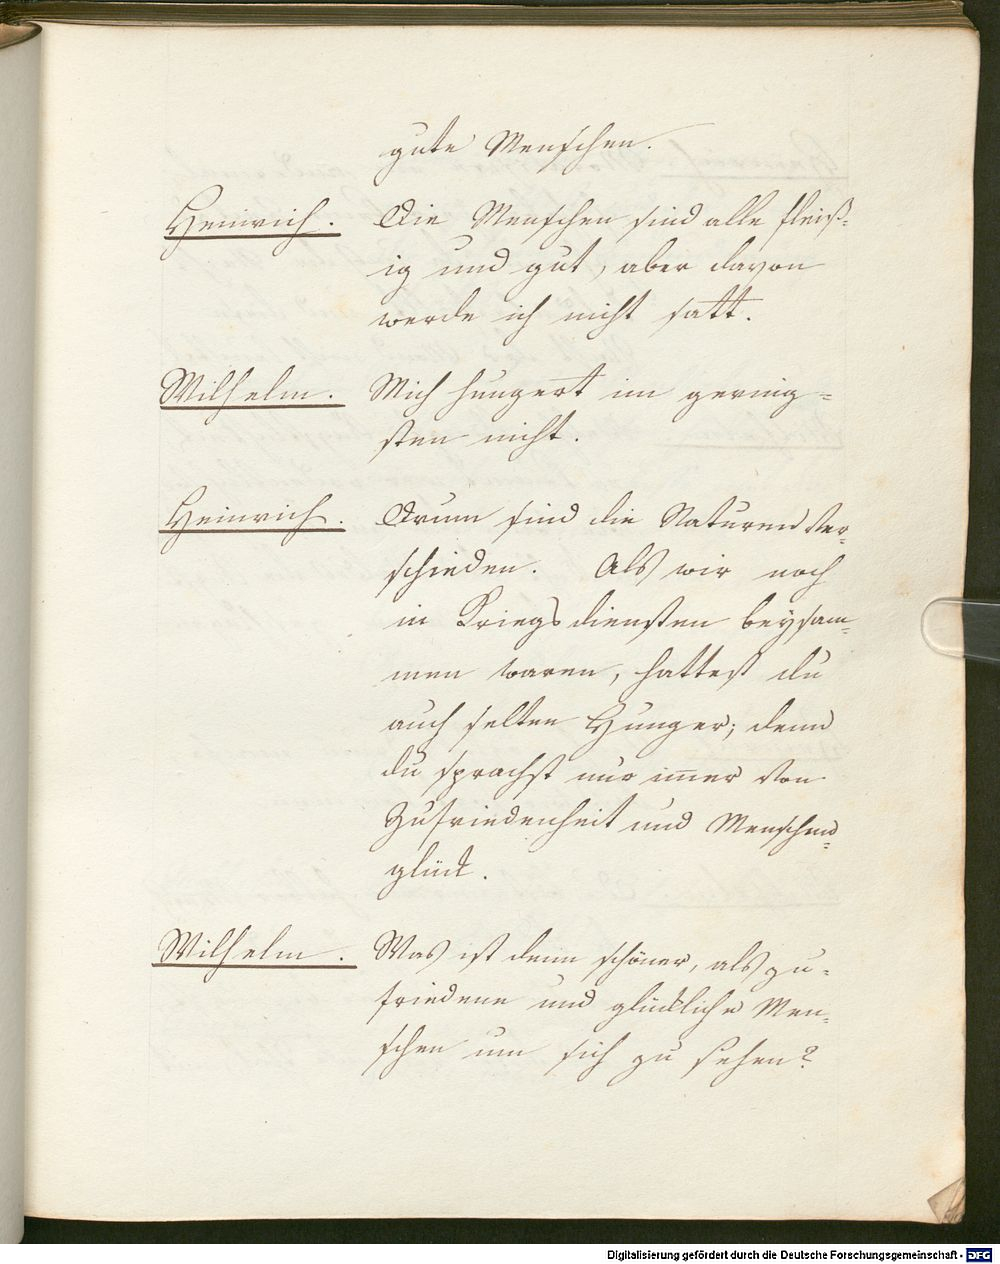 gute Menschen.
Heinrich. Die Menschen sind alle fleiß-
ig und gut, aber davon
werde ich nicht satt.
Wilhelm. Mich hungert im gering-
sten nicht.
Heinrich. Drum sind die Naturen ver-
schieden. Als wir noch
in Kriegsdiensten beysam-
men waren, hattest du
auch selten Hunger; denn
du sprachst nur imer von
Zufriedenheit und Menschen-
glück.
Wilhelm. Was ist denn schöner, als zu-
friedene und glückliche Men-
schen um sich zu sehen?
Digitalisierung gefördert durch die Deutsche Forschungsgemeinschaft - DFG